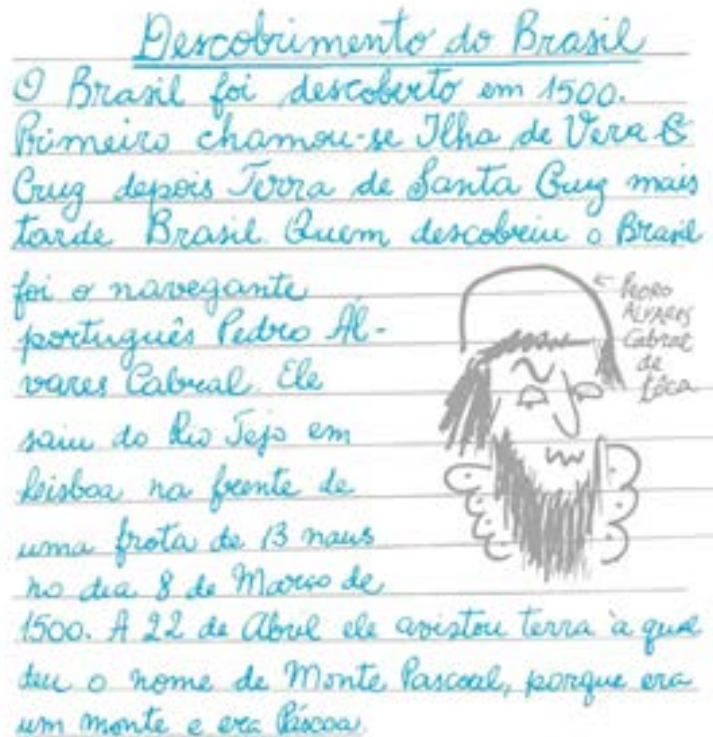 Descobrimento do Brasil
O Brasil foi descoberto em 1500.
Primeiro chamou-se Ilha de Vera &
Cruz depois Terra de Santa Cruz mais
tarde Brasil. Quem descobriu o Brasil
foi o navegante
português Pedro Ál-
vares Cabral. Ele
saiu do Rio Tejo em
Leisboa na frente de
uma frota de 13 naus
no dia 8 de Março de
1500. A 22 de Abril ele avistou terra à qual
deu o nome de Monte Pascoal, porque era
um monte e era Páscoa.
← Pedro
Álvares
Cabral
de